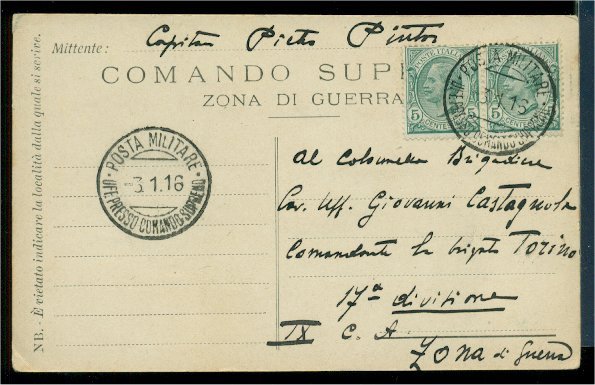 Mittente: Capitan Pietro Pintor
COMANDO SUP
ZONA DI GUERRA
POSTE ITALIANE
5 CENTESIMI 5
5 CENTESIMI 5
POSTA MILITARE
3.1.16
COMANDO SUPREMO
POSTA MILITARE
-3.1.16
UFF. PRESSO COMANDO SUPREMO
Al Colonnello Brigadiere
Cav. Uff. Giovanni Castagnola
Comandante la brigata Torino
17ª divisione
IX C. A.
Zona di Guerra
NB. - È vietato indicare la località dalla quale si scrive.